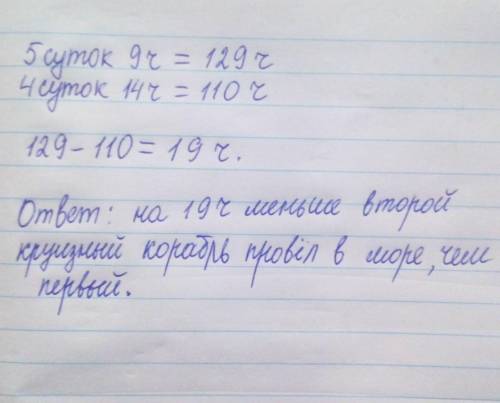 5 суток 9ч = 129ч
4 суток 14ч = 110 ч
129-110 = 19 ч.
Ответ: на 19ч меньше второй
круизный корабль провіл в море, чем
первый.